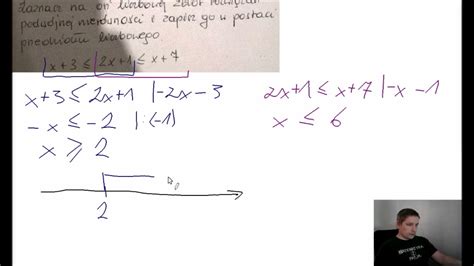 Zaznacz na osi liczbowej zbiór rozwiązań
podwójnej nierówności i zapisz go w postaci
przedziału liczbowego.
x+3 ≤ 2x+1 ≤ x+7
x+3 ≤ 2x+1 |-2x-3
-x ≤ -2 |:(-1)
x ≥ 2
2
2x+1 ≤ x+7 |-x-1
x ≤ 6